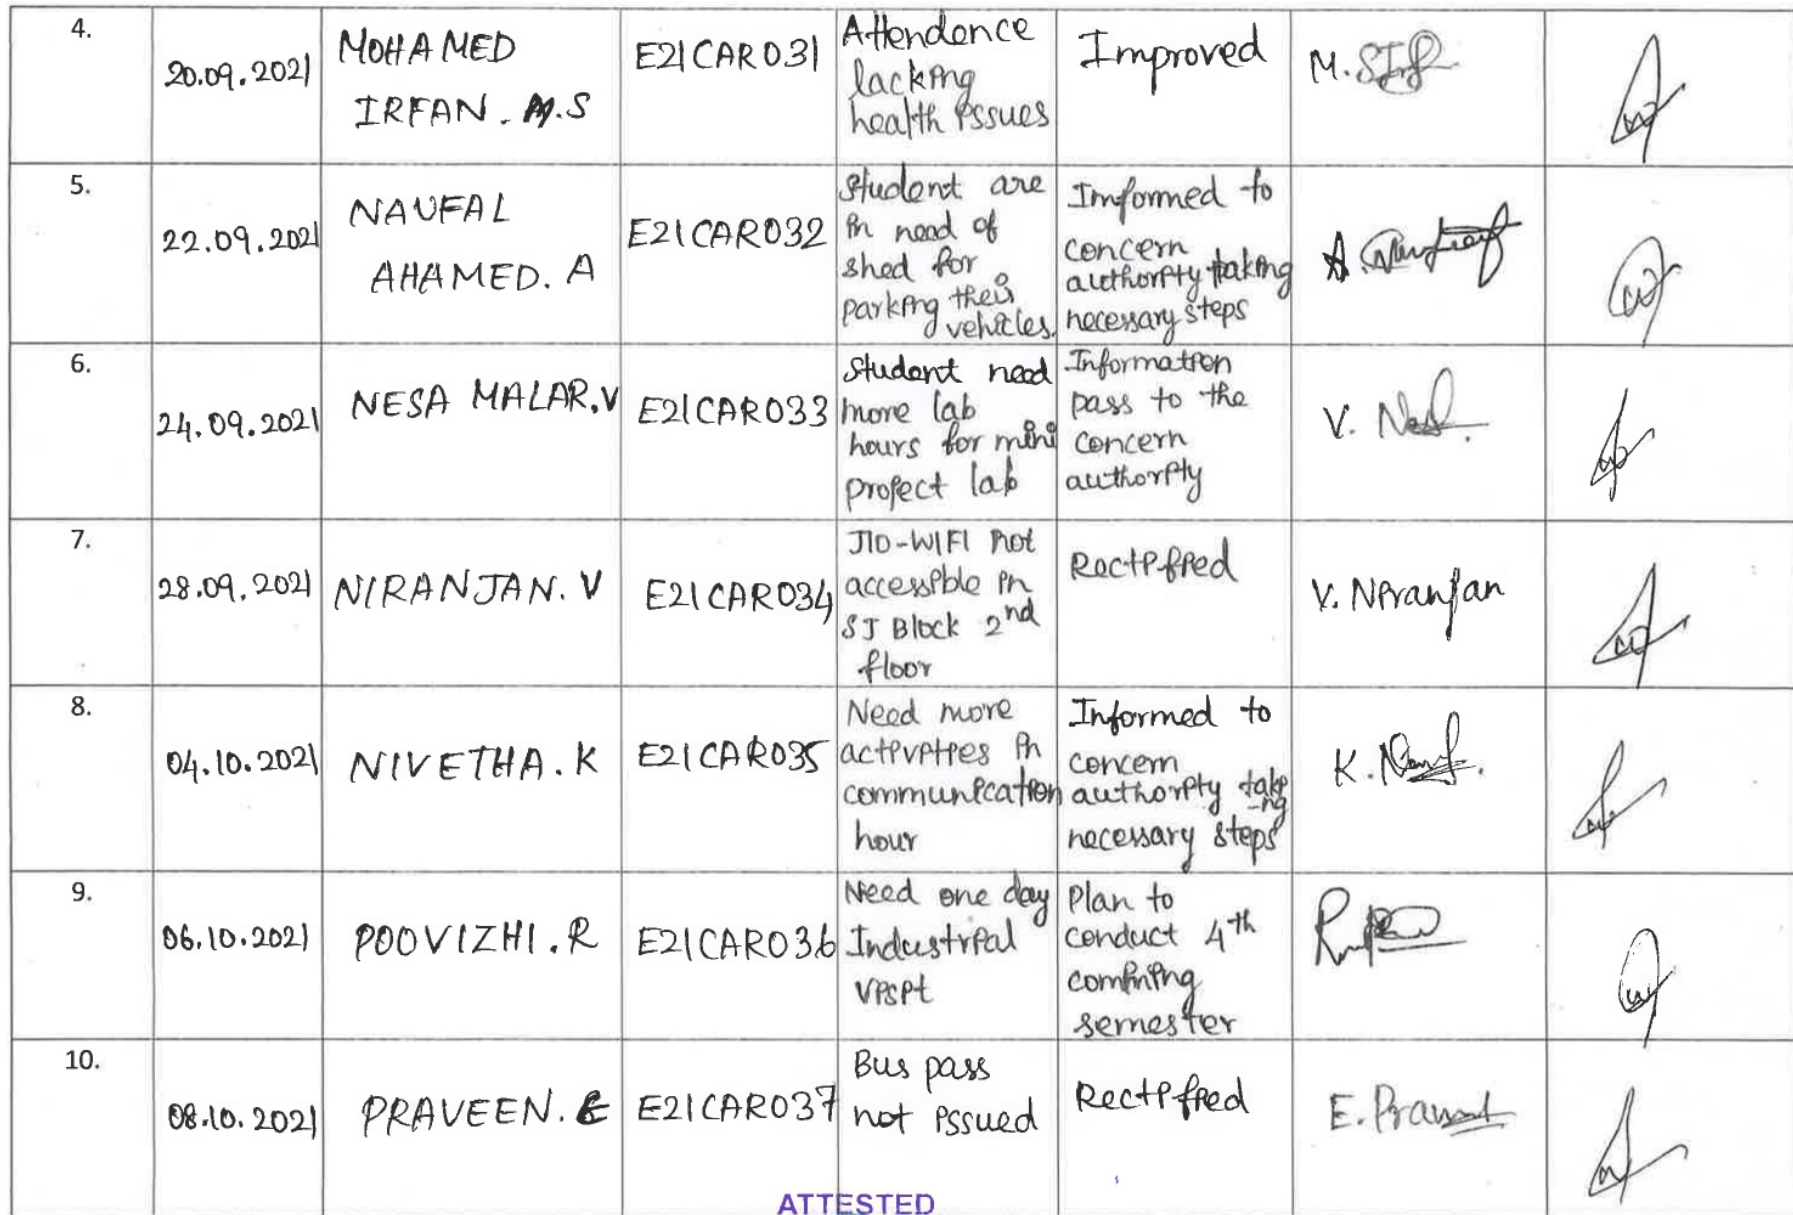 4.
20.09.2021
MOHAMED
IRFAN. M.S
E21CAR031
Attendence
lacking
health issues
Improved
M.
5.
22.09.2021
NAUFAL
AHAMED. A
E21CAR032
Student are
in need of
shed for
parking their
vehicles.
Imformed to
concern
authority taking
necessary steps
A.
6.
24.09.2021
NESA MALAR.V
E21CAR033
Student need
more lab
hours for mini
project lab
Information
pass to the
concern
authority
V.
7.
28.09.2021
NIRANJAN. V
E21CAR034
JIO-WIFI not
accessible in
SJ Block 2nd
floor
Rectified
V. Niranjan
8.
04.10.2021
NIVETHA. K
E21CAR035
Need more
activities in
communication
hour
Informed to
concern
authority taki
-ng
necessary steps
K.
9.
06.10.2021
POOVIZHI. R
E21CAR036
Need one day
Industrial
visit
Plan to
conduct 4th
comining
semester
10.
08.10.2021
PRAVEEN. E
E21CAR037
Bus pass
not issued
Rectified
E.
ATTESTED